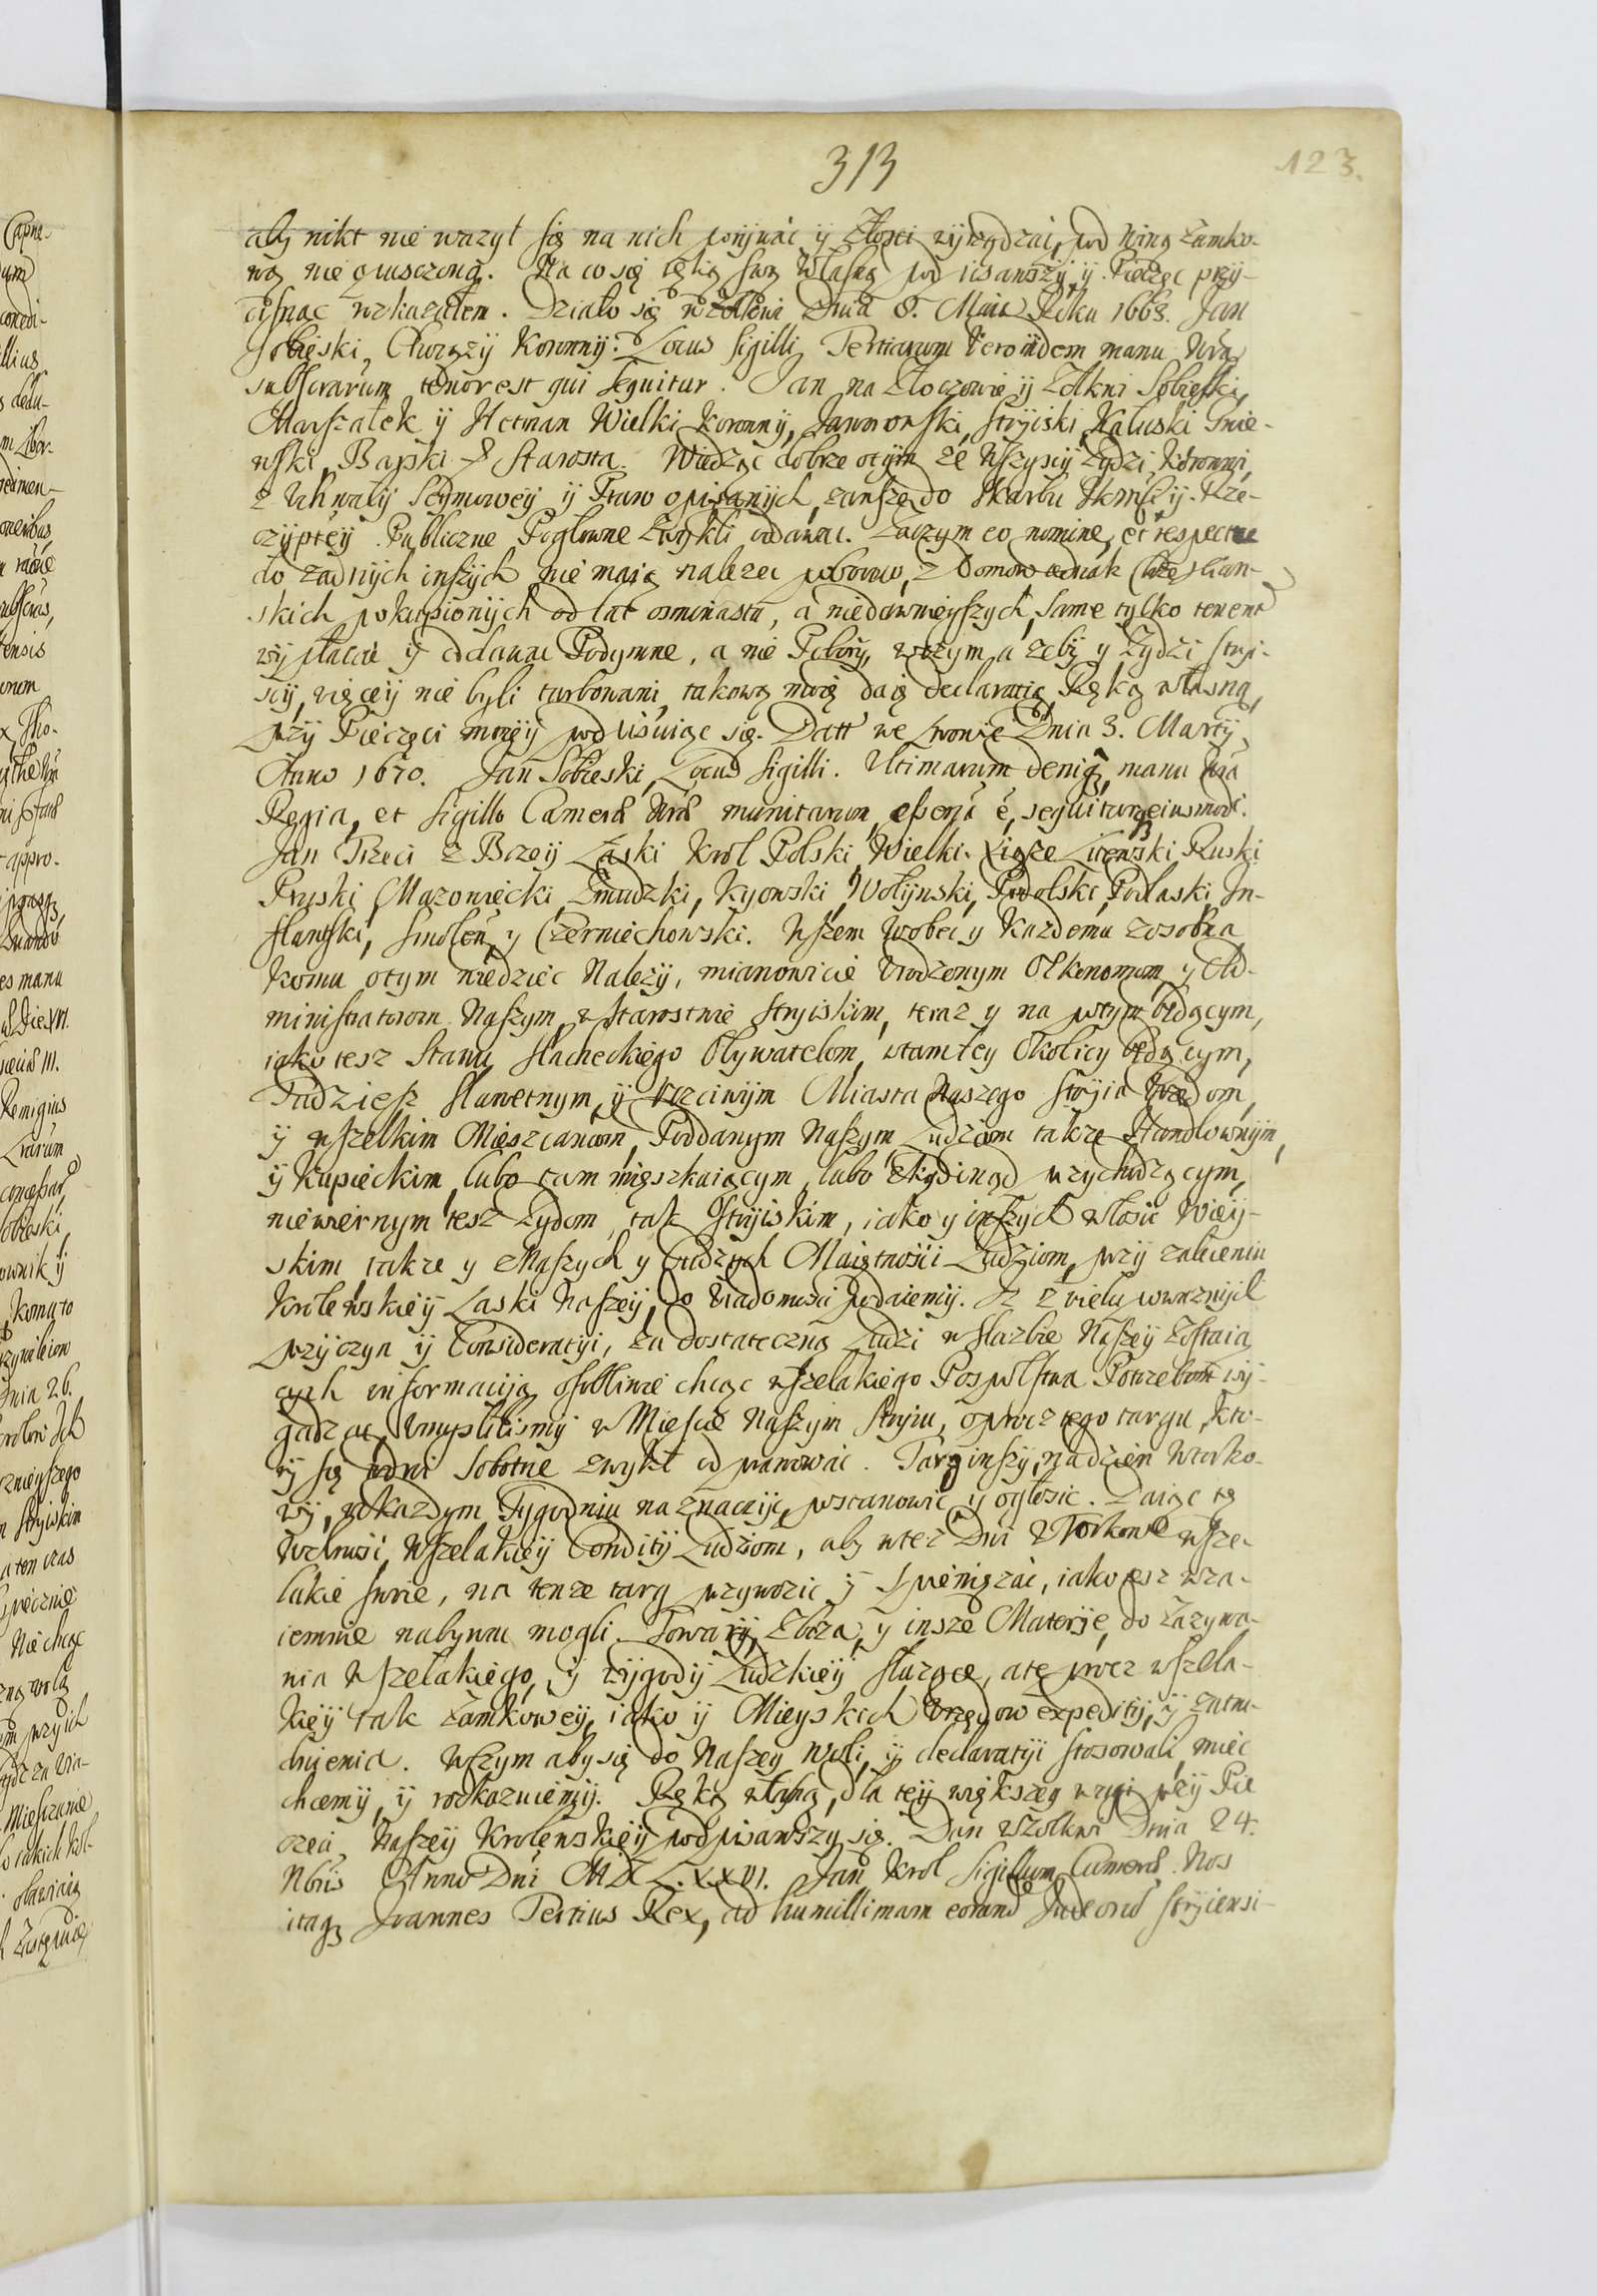 313
123.
aby nikt nie wazył się na nich porywac y Złosci wyrządzac, pod winą Zamko-
wą nie opusczoną. Na co się ręką swą Własną pod pisawszy, y Pieczęc przy-
cisnąc rozkazałem. Działo się w Zołkwi Dnia 8. Maia Roku 1663. Jan
Sobieski, Chorązy Koronny. Locus Sigilli Tertiarum vero itidem manu Nra
subscrarum tenor est qui sequitur. Jan na Złoczowie y Zołkwi Sobieski,
Marszałek y Hetman Wielki Koronny, Jaworowski, Stryiski, Kałuski Gnie-
wski, Barski & Starosta. Wiedząc dobrze o tym ze wszyscy Zydzi Koronni,
z Uchwały Seymowey y Praw opisanych, zawsze do Skarbu y Rze-
czyptey Publiczne Pogłowne zwykli oddawac. Zaczym eo nomine, et respectu
do zadnych inszych nie maią nalezec poborow, z Domow ednak Chrzescian-
skich pokupionych od lat osminastu, a niedawnieyszych, same tylko tenent
wypłacac y oddawac Podymne, a nie Pobory, w czym a zeby y Zydzi Stryi-
scy, więcey nie byli turbowani, takową moię daię declaratią, Ręką własną,
przy Pieczęci moiey podpisuiąc się. Datt we Lwowie Dnia 3. Marty,
Anno 1670. Jan Sobieski, Locus Sigilli. Ultimarum deniq, manu nra
Regia, et Sigillo Camerae Nrae munitarum, sequitur eiusmodi.
Jan Trzeci z Bozey Łaski Krol Polski, Wielki Xiąze Litewski Ruski
Pruski Mazowiecki, Zmudzki, Kyowski, Wołynski, Podolski, Podlaski, In-
flantski, Smolen, y Czerniechowski. Wszem Wobec y Kazdemu zosobna
komu o tym wiedziec Nalezy, mianowicie Urodzonym Oekonomom, y Ad-
ministratorom Naszym, w Starostwie Stryiskim, teraz y na potym będącym,
iako tesz Stanu Slacheckiego Obywatelom, w tamtey Okolicy będącym,
Tudziesz Sławetnym, y Uczciwym Miasta Naszego Stryia Urzędom,
y wszelkim Mieszczanom, Poddanym Naszym, Ludziom takze Handlownym,
y Kupieckim, lubo tam mięszkaiącym, lubo zkądinąd przychodzącym,
niewiernym tesz Zydom, tak Stryiskim, iako y inszych włosci Wiey-
skim takze y z Naszych y Cudzych Maiętnosci Ludziom, przy zaleceniu
Krolewskiey Łaski Naszey, do Wiadomosci podaiemy. Iz z wielu powaznych
przyczyn y Consideratyi, za dostateczną Ludzi w Słuzbie Naszey Zostaią
cych informacyą osobliwie chcąc wszelakiego Pospolstwa Potrzebom wy-
gadzac, Umyslilismy w Miescie Naszym Stryiu, oprocz tego targu, kto-
ry się w dni Sobotne zwykł odprawowac. Targ inszy, na dzien Wtorko-
wy, w kazdym Tygodniu naznaczyc, postanowic y ogłosic. Daiąc tę
Wolnosc, Wszelakiey Condityi Ludziom, aby w tez Dni Wtorkowe wsze-
lakie swoie, na tenze targ przywozic y Spieniązac, iako tesz wza-
iemnie nabywac mogli. Towary, Zboza, y insze Materye, do Zazywa-
nia Wszelakiego, y wygody Ludzkiey Słuzące, a te procz wszela-
kiey tak Zamkowey, iako y Mieyskich Urzędow expedityi, y Zatru-
dnienia. W czym aby się do Naszey Woli, y declaratyi stosowali, miec
chcemy, y roskazuiemy. Ręką własną, dla tey większey wagi przy Pie
częci Naszey Krolewskiey podpisawszy się. Dan w Zołkwi Dnia 24.
Nbris Anno Dni MDCLXXVI. Jan Krol Sigillum Camerae. Nos
itaq, Joannes Tertius Rex, ad humillimam eorund Judeorū Stryiensi-